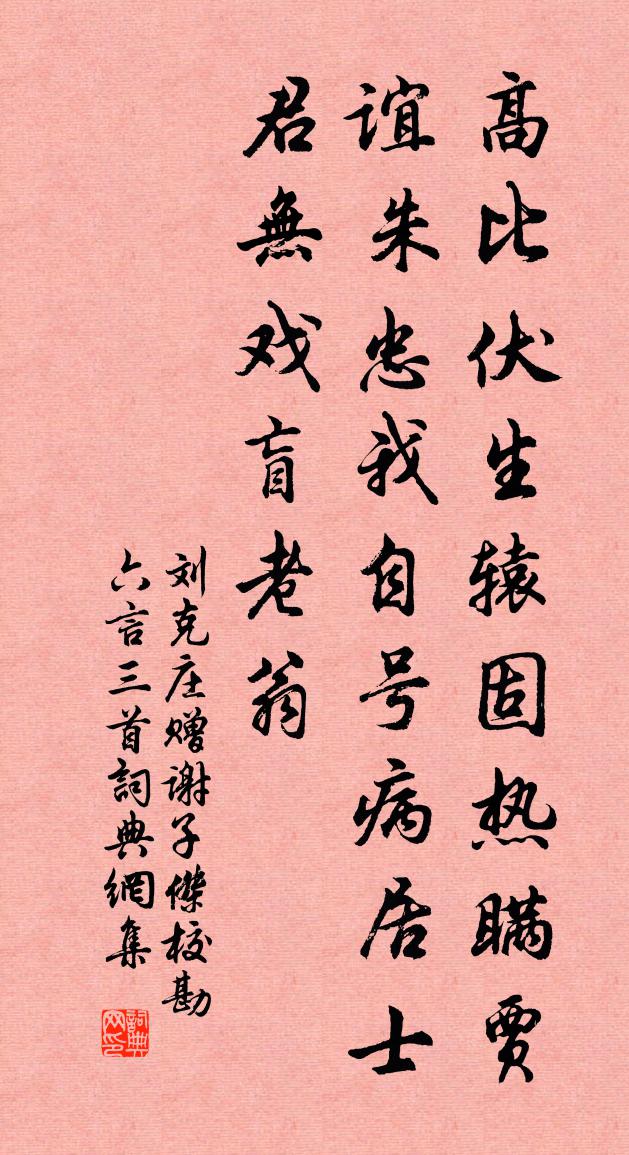 高比伏生辕固热瞒贾
谊朱忠我自号病居士
君無戏盲老翁
刘克庄赠谢子傑校勘
六言三首詞典網集
詞典网印